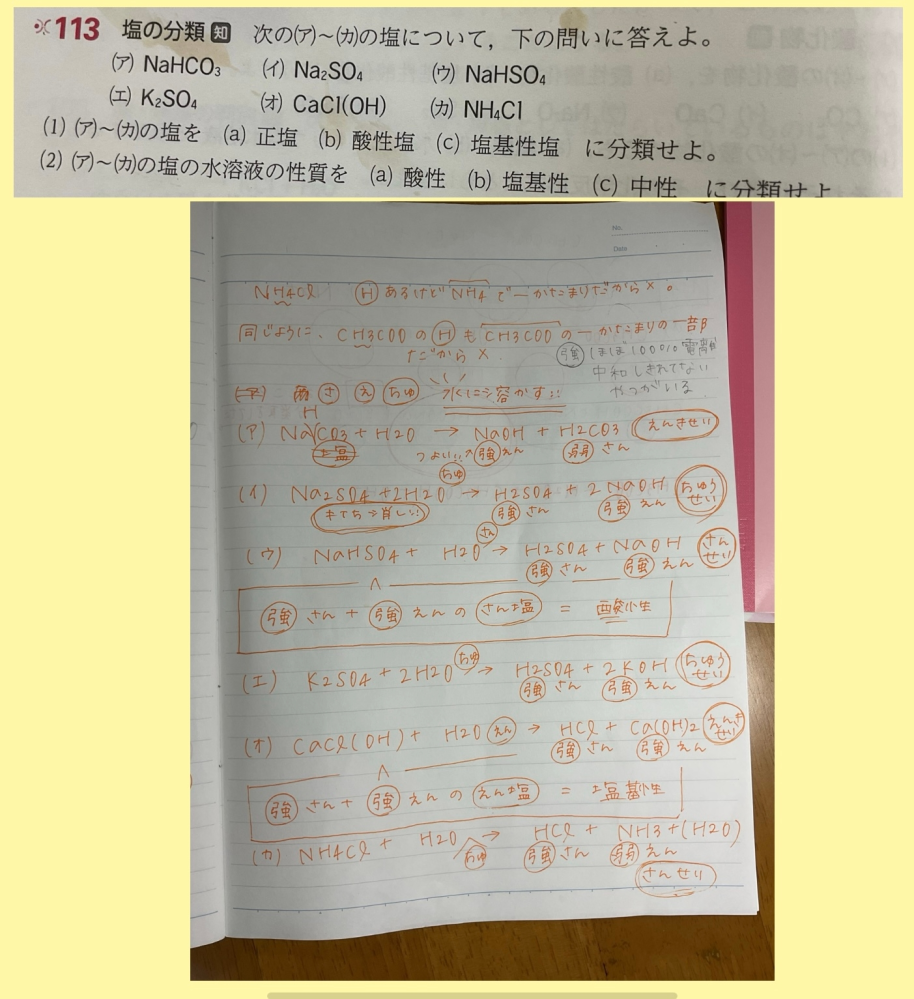 ※113 塩の分類 知 次の(ア)~(カ)の塩について,下の問いに答えよ。
(ア) NaHCO₃ (イ) Na₂SO₄ (ウ) NaHSO₄
(エ) K₂SO₄ (オ) CaCl(OH) (カ) NH₄Cl
(1) (ア)~(カ)の塩を (a) 正塩 (b) 酸性塩 (c) 塩基性塩 に分類せよ。
(2) (ア)~(カ)の塩の水溶液の性質を (a) 酸性 (b) 塩基性 (c) 中性 に分類せよ
No.
Date
NH4Cl Hあるけど NH4 で一かたまりだから×。
同じように、CH3COOのHもCH3COOの一かたまりの一部
だから×
強 ほぼ100%電離
中和しきれてない
やつがいる
さ え ちゅ 水に溶かす!!
H
(ア) NaCO3 + H2O → NaOH + H2CO3 えんきせい
つよい!! 強えん 弱さん
ちゅ
(イ) Na2SO4 + 2H2O → H2SO4 + 2NaOH ちゅうせい
強さん 強えん
さん
(ウ) NaHSO4 + H2O → H2SO4 + NaOH さんせい
強さん 強えん
強さん + 強えんのさん塩 = 酸性
(エ) K2SO4 + 2H2O ちゅ → H2SO4 + 2KOH ちゅうせい
強さん 強えん
(オ) CaCl(OH) + H2O えん → HCl + Ca(OH)2 えんきせい
強さん 強えん
強さん + 強えんのえん塩 = 塩基性
(カ) NH4Cl + H2O ちゅ → HCl + NH3+(H2O)
強さん 弱えん
さんせい